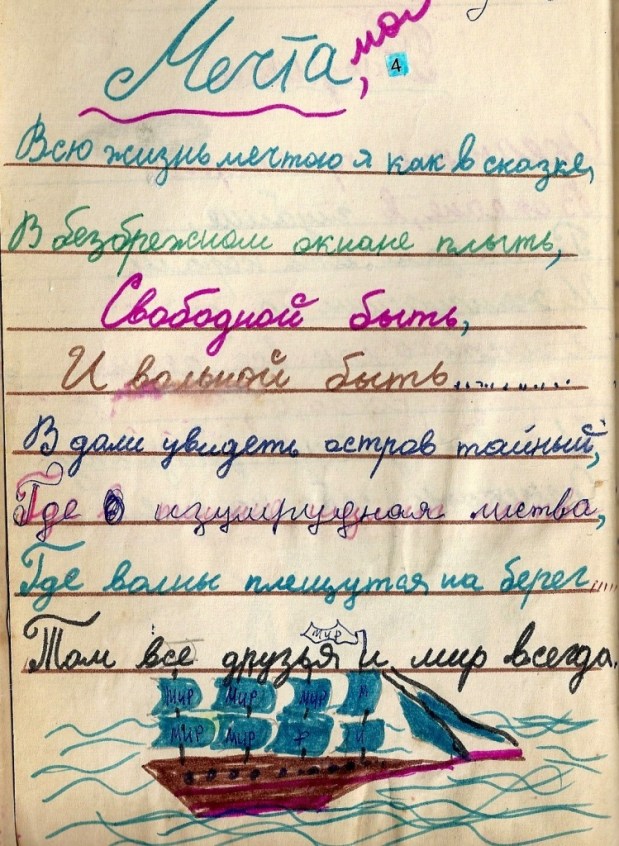 Мечта, моя
4
Всю жизнь мечтою я как в сказке,
В безбрежном окиане плыть,
Свободной быть,
И вольной быть...........
В дали увидеть остров тайный,
Где изумрудная листва,
Где волны плещутся на берег....
Там все друзья и мир всегда.
мир
Мир Мир Мир М
Мир Мир Р И